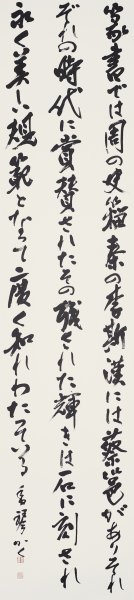 篆書では周の史籀秦の李斯漢には蔡邕がありそれ
ぞれの時代に賞賛されたその残された輝きは石に刻され
永く美しい規範となって広く知れわたっている